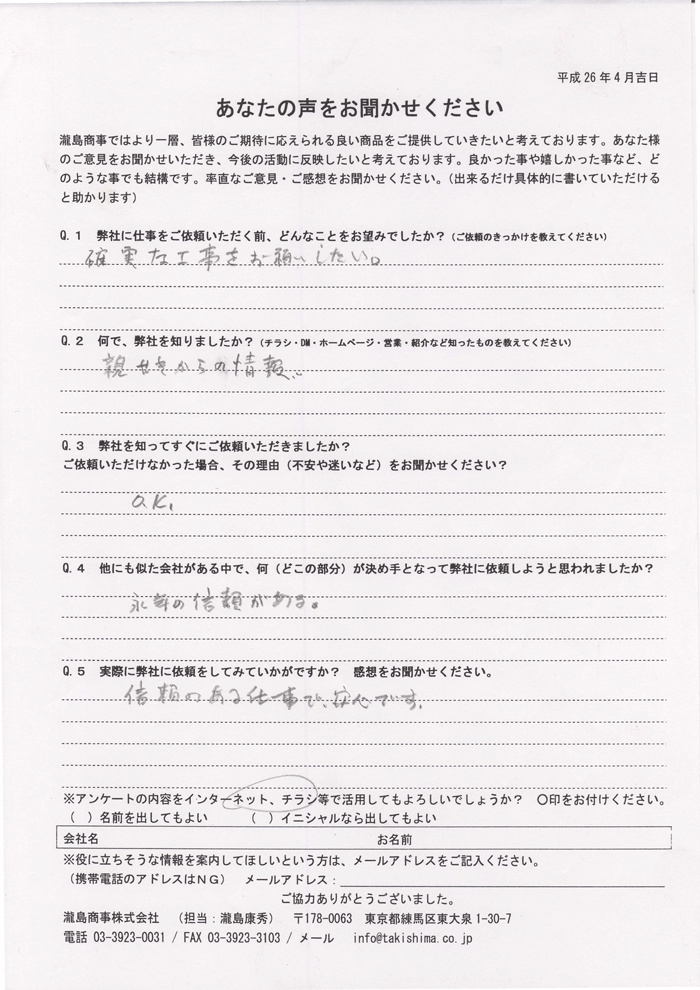 平成26年4月吉日
あなたの声をお聞かせください
瀧島商事ではより一層、皆様のご期待に応えられる良い商品をご提供していきたいと考えております。あなた様
のご意見をお聞かせいただき、今後の活動に反映したいと考えております。良かった事や嬉しかった事など、ど
のような事でも結構です。率直なご意見・ご感想をお聞かせください。(出来るだけ具体的に書いていただける
と助かります)
Q.1 弊社に仕事をご依頼いただく前、どんなことをお望みでしたか?(ご依頼のきっかけを教えてください)
確実な工事をお願いしたい。
Q.2 何で、弊社を知りましたか?(チラシ・DM・ホームページ・営業・紹介など知ったものを教えてください)
親せきからの情報。
Q.3 弊社を知ってすぐにご依頼いただきましたか?
ご依頼いただけなかった場合、その理由(不安や迷いなど)をお聞かせください?
O.K.
Q.4 他にも似た会社がある中で、何(どこの部分)が決め手となって弊社に依頼しようと思われましたか?
永年の信頼がある。
Q.5 実際に弊社に依頼をしてみていかがですか? 感想をお聞かせください。
信頼のある仕事で、安心です。
※アンケートの内容をインターネット、チラシ等で活用してもよろしいでしょうか? 〇印をお付けください。
( )名前を出してもよい ( )イニシャルなら出してもよい
会社名 お名前
※役に立ちそうな情報を案内してほしいという方は、メールアドレスをご記入ください。
(携帯電話のアドレスはNG) メールアドレス:
ご協力ありがとうございました。
瀧島商事株式会社 (担当:瀧島康秀) 〒178-0063 東京都練馬区東大泉1-30-7
電話 03-3923-0031 / FAX 03-3923-3103 / メール info@takishima.co.jp